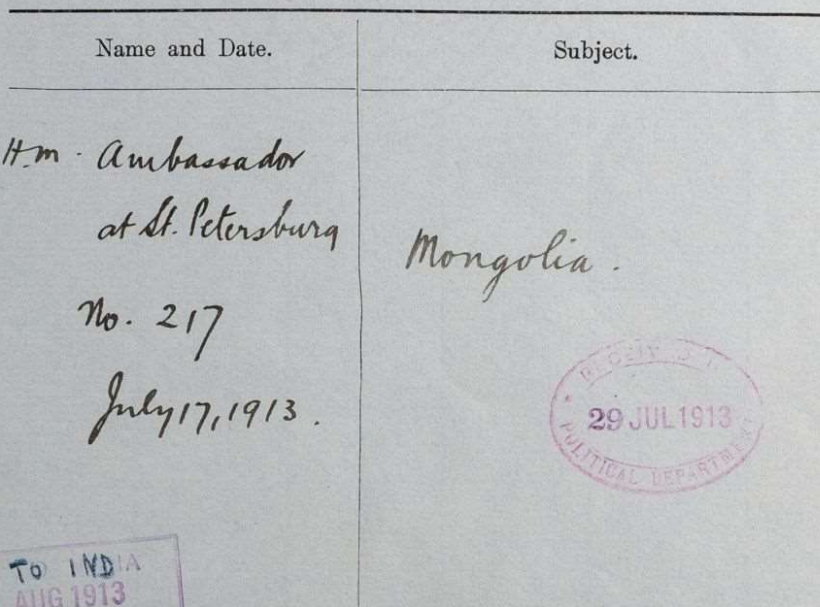 Name and Date.
Subject.
H.M. Ambassador
at St. Petersburg
No. 217
July 17, 1913.
Mongolia.
RECEIVED
29 JUL 1913
POLITICAL DEPARTMENT
TO INDIA
AUG 1913